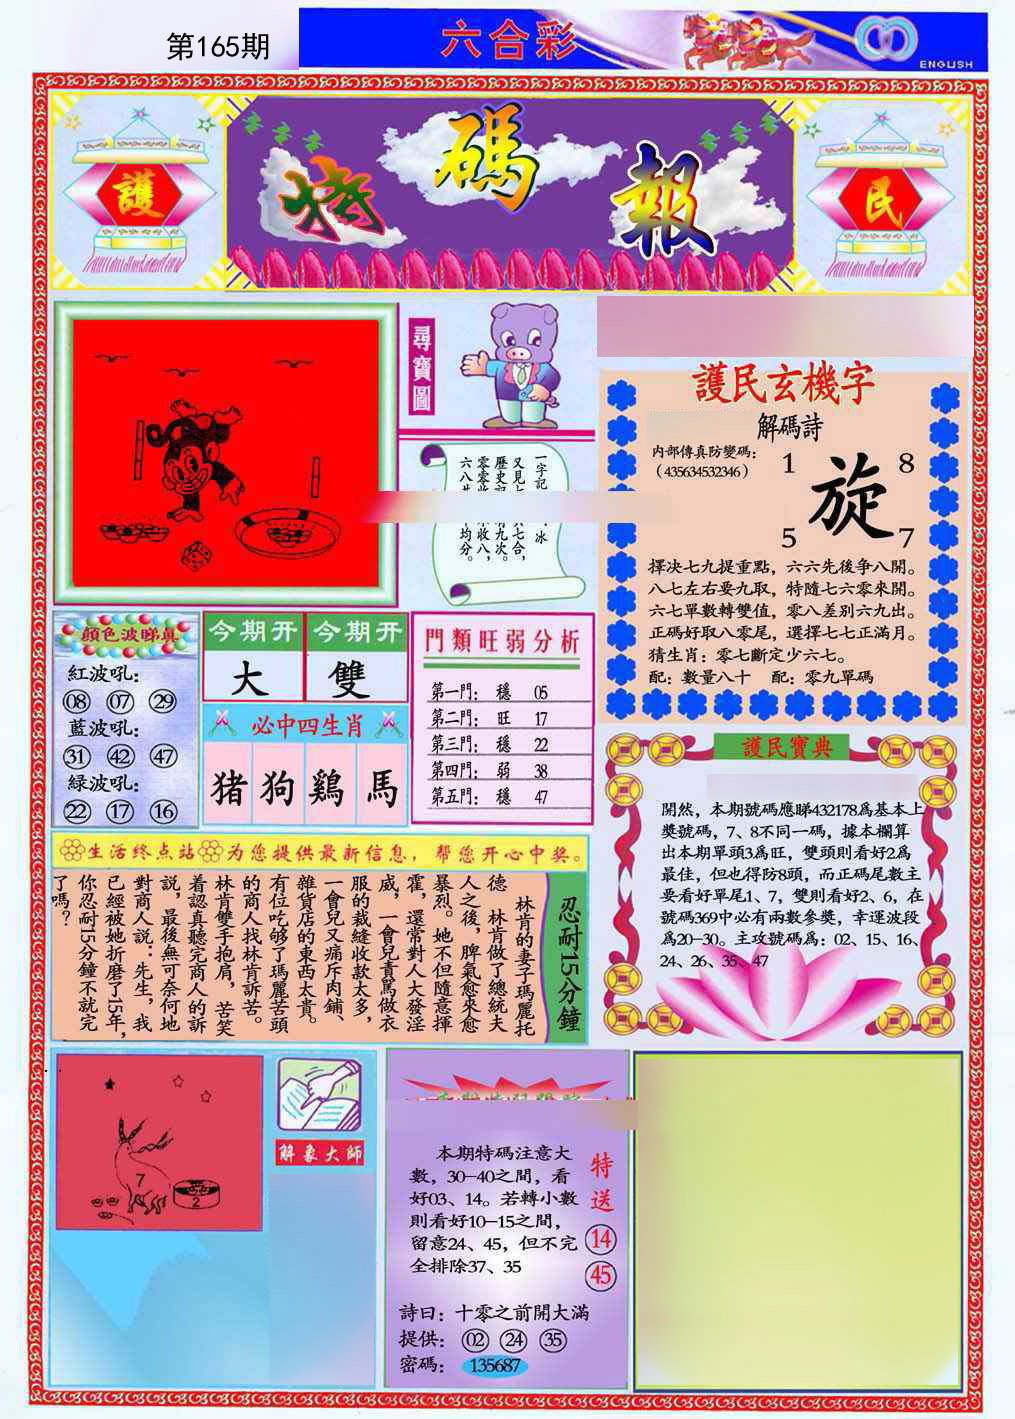 第165期
六合彩
ENGLISH
護
特碼報
民
尋寶圖
一字記
冰
又見七
七合,
歷史記
九次。
零零收
收八,
六八
均分。
護民玄機字
解碼詩
内部傳真防變碼:
(435634532346)
1
8
旋
5
7
擇决七九提重點，六六先後争八開。
八七左右要九取，特隨七六零來開。
六七單數轉雙值，零八差别六九出。
正碼好取八零尾，選擇七七正滿月。
猜生肖：零七斷定少六七。
配：數量八十 配：零九單碼
顔色波睇真
紅波吼:
08 07 29
藍波吼:
31 42 47
緑波吼:
22 17 16
今期开 今期开
大 雙
必中四生肖
猪 狗 鷄 馬
門類旺弱分析
第一門: 穩 05
第二門: 旺 17
第三門: 穩 22
第四門: 弱 38
第五門: 穩 47
護民寶典
開然，本期號碼應睇432178爲基本上
獎號碼，7、8不同一碼，據本欄算
出本期單頭3爲旺，雙頭則看好2爲
最佳，但也得防8頭，而正碼尾數主
要看好單尾1、7，雙則看好2、6，在
號碼369中必有兩數參獎，幸運波段
爲20-30。主攻號碼爲：02、15、16、
24、26、35、47
生活终点站 为您提供最新信息，帮您开心中奖。
忍耐15分鐘
林肯的妻子瑪麗托
德 林肯做了總統夫
人之後，脾氣愈來愈
暴烈。她不但隨意揮
霍，還常對人大發淫
威，一會兒責罵做衣
服的裁縫收款太多，
一會兒又痛斥肉鋪、
雜貨店的東西太貴。
有位吃够了瑪麗苦頭
的商人找林肯訴苦。
林肯雙手抱肩，苦笑
着認真聽完商人的訴
説，最後無可奈何地
對商人説：先生，我
已經被她折磨了15年，
你忍耐15分鐘不就完
了嗎？
7
2
解象大師
本期特碼注意大
數，30-40之間，看
好03、14。若轉小數
則看好10-15之間，
留意24、45，但不完
全排除37、35
特送
14
45
詩曰：十零之前開大滿
提供: 02 24 35
密碼: 135687